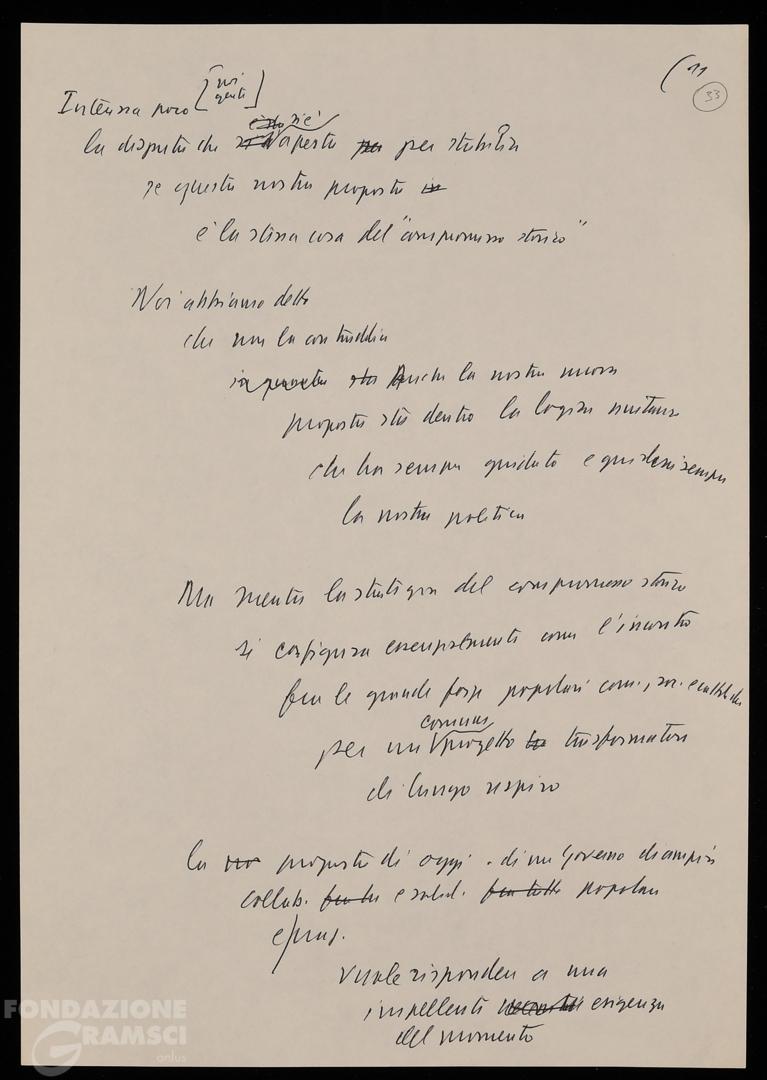 (11
33
Interessa poco [noi gente]
la disputa che si è aperta per stabilire
se questa nostra proposta
è la stessa cosa del "compromesso storico"
Noi abbiamo detto
che non la contraddice
Anche la nostra nuova
proposta sta dentro la logica unitaria
che ha sempre guidato e guiderà sempre
la nostra politica
Ma mentre la strategia del compromesso storico
si configura essenzialmente come l'incontro
fra le grandi forze popolari com., soc. e cattoliche
per un comune progetto trasformatore
di lungo respiro
la proposta di oggi - di un Governo di ampia
collab. e solid. popolare
e prog.
vuole rispondere a una
impellente esigenza
del momento
FONDAZIONE
GRAMSCI
onlus